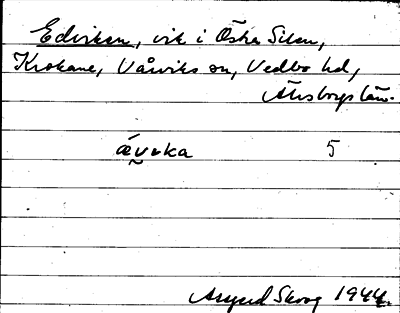 Edviken, vik i Östra Silen,
Krokane, Vårviks sn, Vedbo hd,
Älvsborgs län.
5
Assar Skoog 1944.